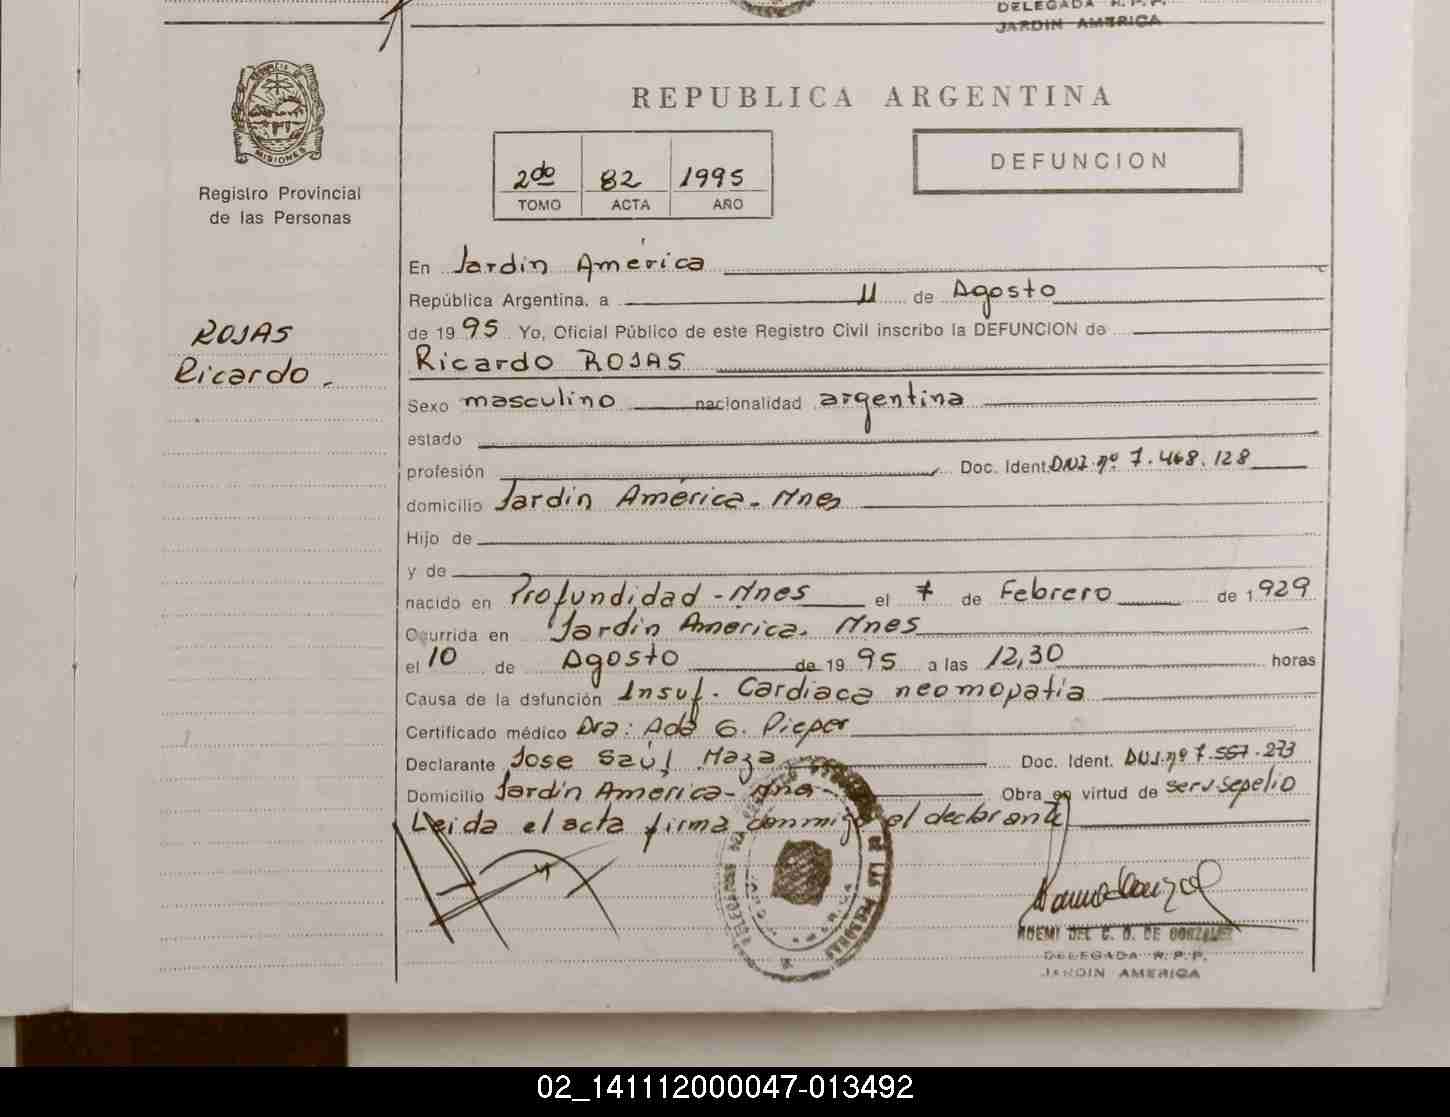 DELEGADA R. P. P.
JARDIN AMERICA
PROVINCIA DE
MISIONES
Registro Provincial
de las Personas
REPUBLICA ARGENTINA
2do 82 1995
TOMO ACTA AÑO
DEFUNCION
ROJAS
Ricardo.
En Jardín América
República Argentina, a 11 de Agosto
de 1995 Yo, Oficial Público de este Registro Civil inscribo la DEFUNCION de
Ricardo ROJAS
Sexo masculino nacionalidad argentina
estado
profesión Doc. Ident. DNI nº 7.468.128
domicilio Jardín América - Mnes
Hijo de
y de
nacido en Profundidad - Mnes el 7 de Febrero de 1.929
Ocurrida en Jardín América. Mnes
el 10 de Agosto de 1995 a las 12,30 horas
Causa de la defunción Insuf. Cardiaca neomopatía
Certificado médico Dra: Ada G. Pieper
Declarante Jose Saúl Maza Doc. Ident. DNI nº 7.557.273
Domicilio Jardín América - Mnes - Obra en virtud de serv sepelio
Leida el acta firma conmigo el declarante
NOEMI DEL C. D. DE GONZALEZ
DELEGADA R. P. P.
JARDIN AMERICA
02_141112000047-013492